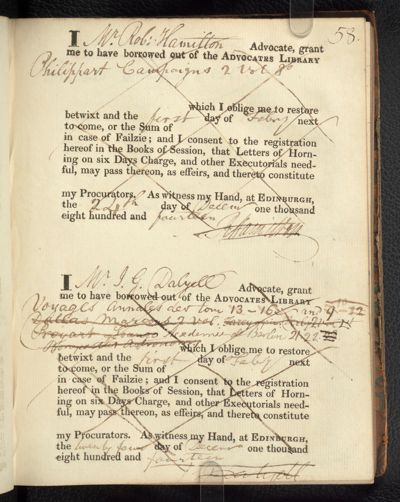 58.
I Mr Robt Hamilton Advocate, grant
me to have borrowed out of the ADVOCATES LIBRARY
Philippart Campaigns 2 vol 8o
which I oblige me to restore
betwixt and the first day of Feby next
to come, or the Sum of
in case of Failzie; and I consent to the registration
hereof in the Books of Session, that Letters of Horn-
ing on six Days Charge, and other Executorials need-
ful, may pass thereon, as effeirs, and thereto constitute
my Procurators. As witness my Hand, at EDINBURGH,
the day of Decem one thousand
eight hundred and fourteen
RHamilton
I Mr J. G. Dalyell Advocate, grant
me to have borrowed out of the ADVOCATES LIBRARY
Voyages Annales des tom 13-16 and 9-12
2 vol.
Academie Berlin 21 22
which I oblige me to restore
betwixt and the first day of Feby next
to come, or the Sum of
in case of Failzie; and I consent to the registration
hereof in the Books of Session, that Letters of Horn-
ing on six Days Charge, and other Executorials need-
ful, may pass thereon, as effeirs, and thereto constitute
my Procurators. As witness my Hand, at EDINBURGH,
the twenty four day of Decem one thousand
eight hundred and fourteen